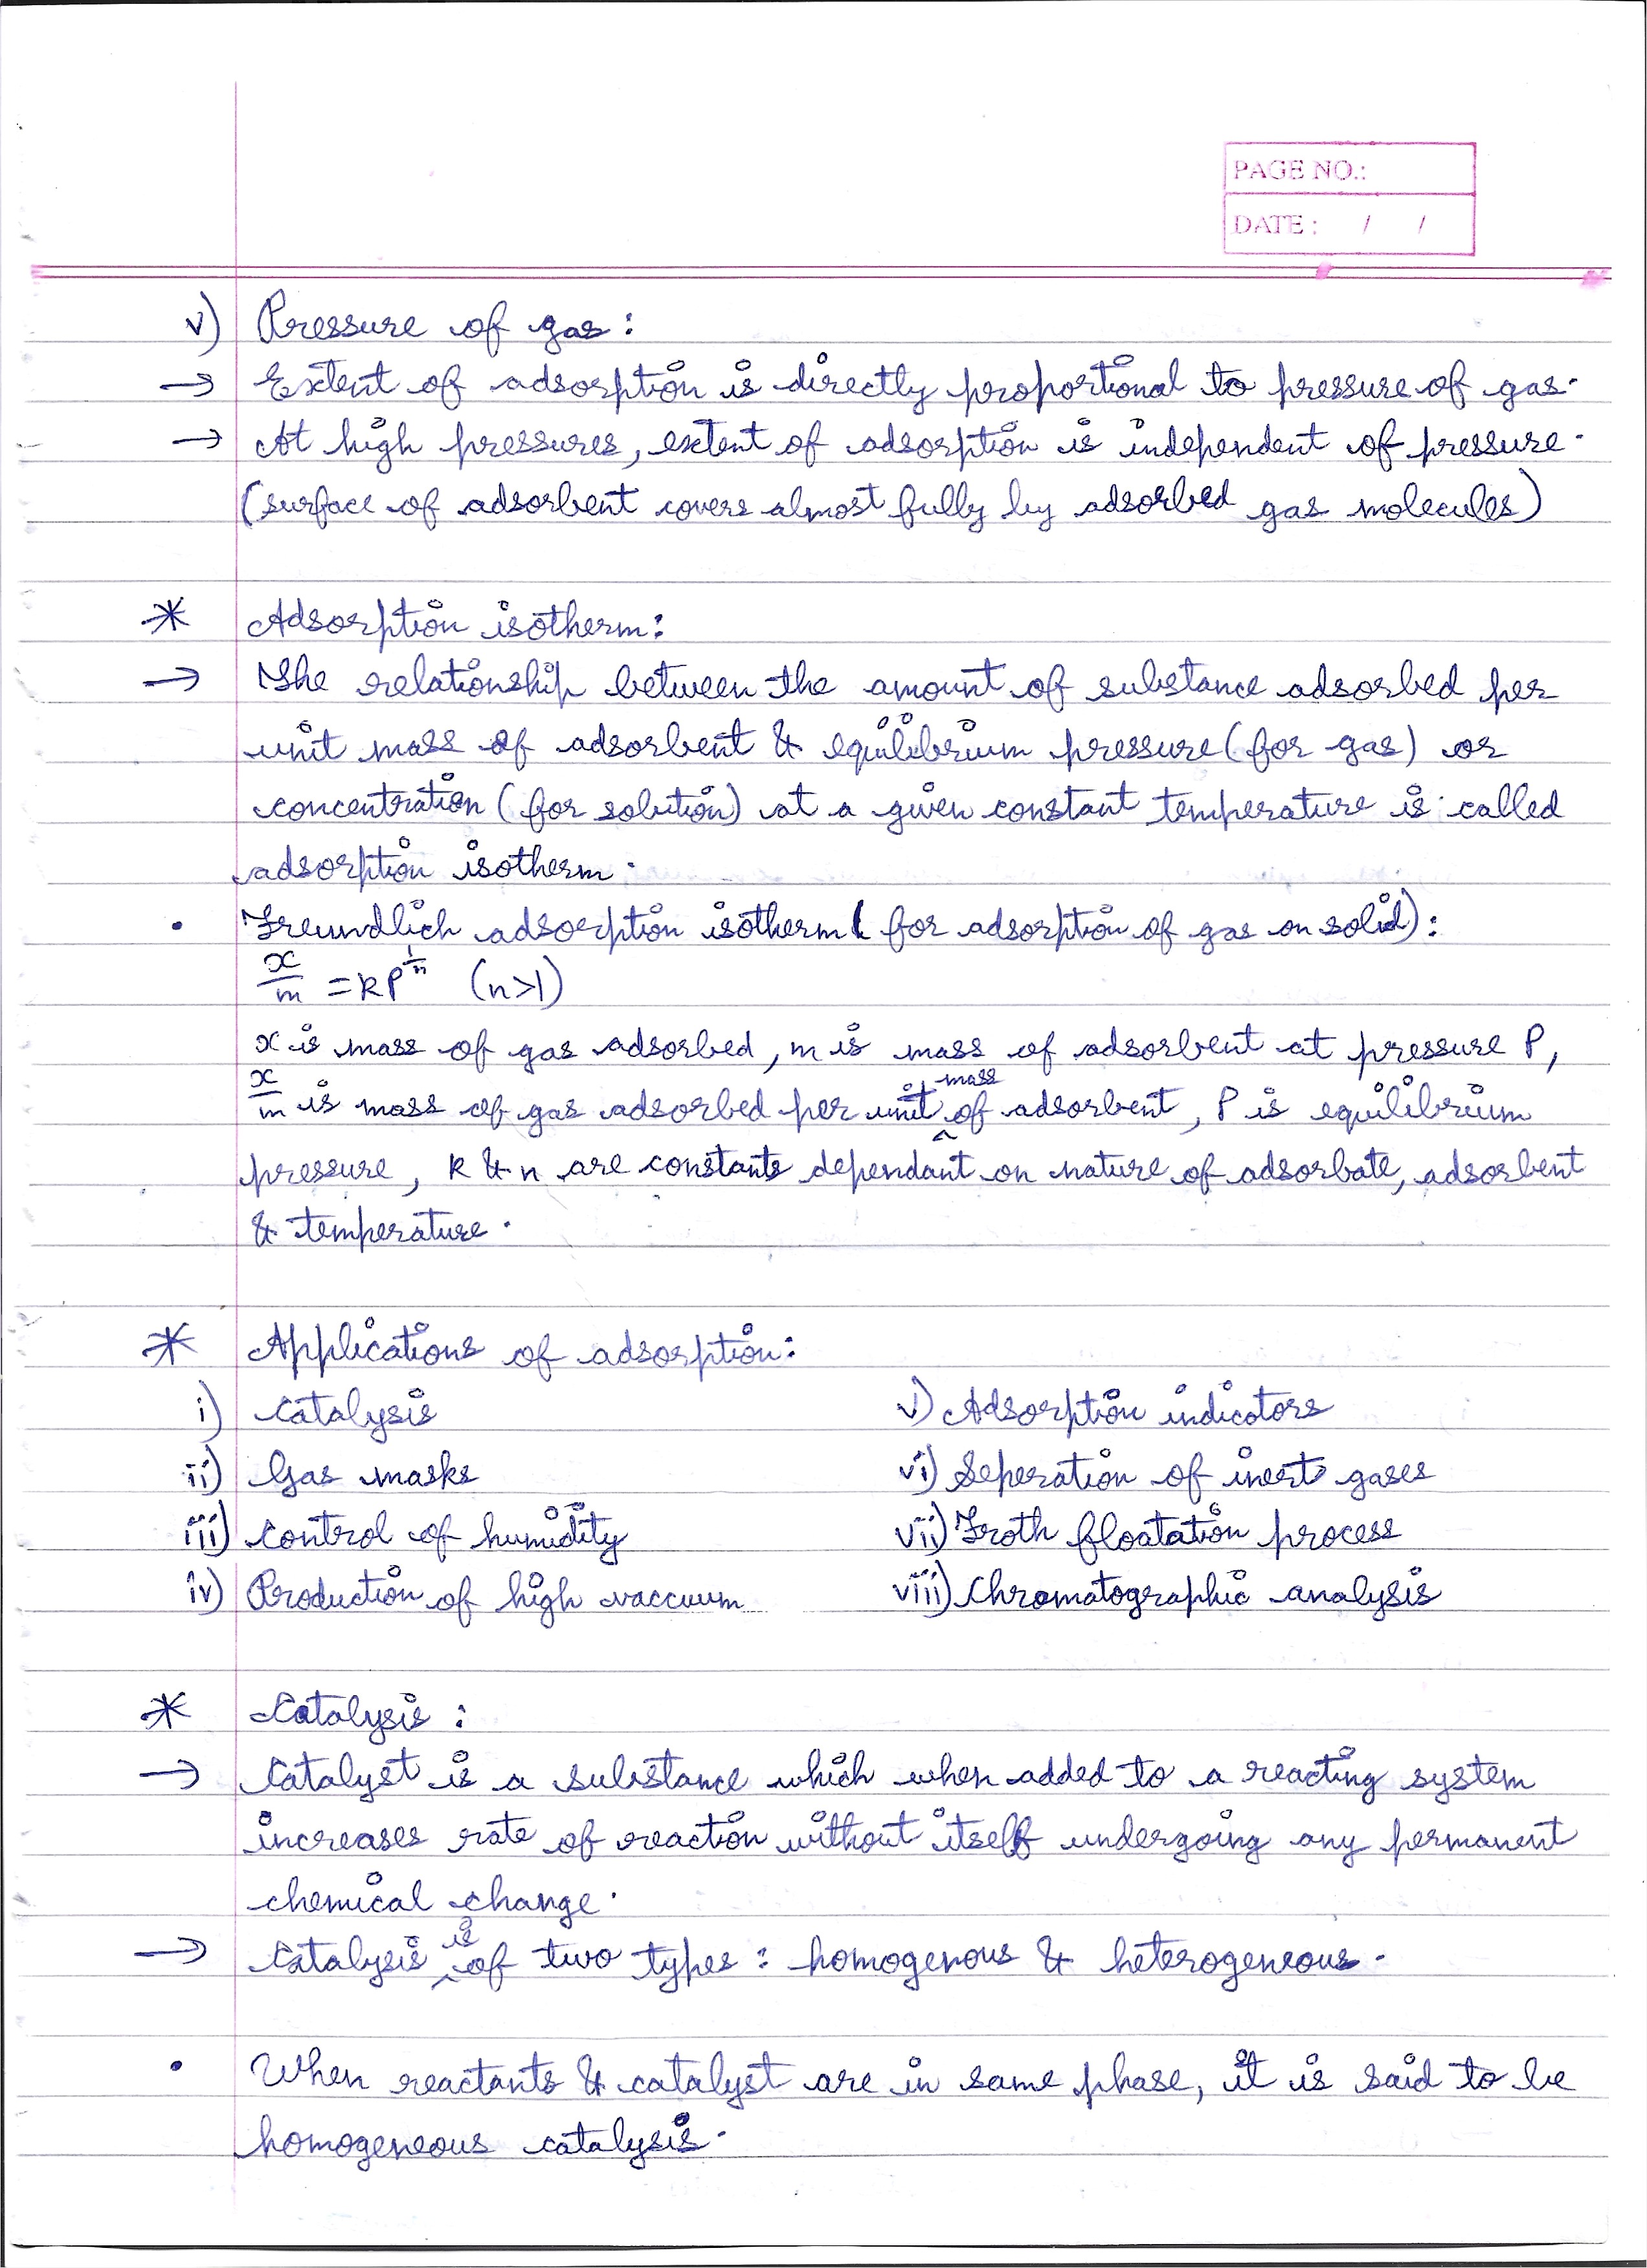 PAGE NO.:
DATE : / /
v) Pressure of gas :
→ Extent of adsorption is directly proportional to pressure of gas.
→ At high pressures, extent of adsorption is independent of pressure.
(surface of adsorbent covers almost fully by adsorbed gas molecules)
* Adsorption isotherm:
→ The relationship between the amount of substance adsorbed per
unit mass of adsorbent & equilibrium pressure (for gas) or
concentration (for solution) at a given constant temperature is called
adsorption isotherm.
• Freundlich adsorption isotherm ( for adsorption of gas on solid) :
x/m = kP^(1/n) (n>1)
x is mass of gas adsorbed, m is mass of adsorbent at pressure P,
x/m is mass of gas adsorbed per unit mass of adsorbent, P is equilibrium
pressure, k & n are constants dependant on nature of adsorbate, adsorbent
& temperature.
* Applications of adsorption:
i) Catalysis v) Adsorption indicators
ii) Gas masks vi) Seperation of inert gases
iii) Control of humidity vii) Froth floatation process
iv) Production of high vaccuum viii) Chromatographic analysis
* Catalysis :
→ Catalyst is a substance which when added to a reacting system
increases rate of reaction without itself undergoing any permanent
chemical change.
→ Catalysis is of two types : homogenous & heterogeneous.
• When reactants & catalyst are in same phase, it is said to be
homogeneous catalysis.